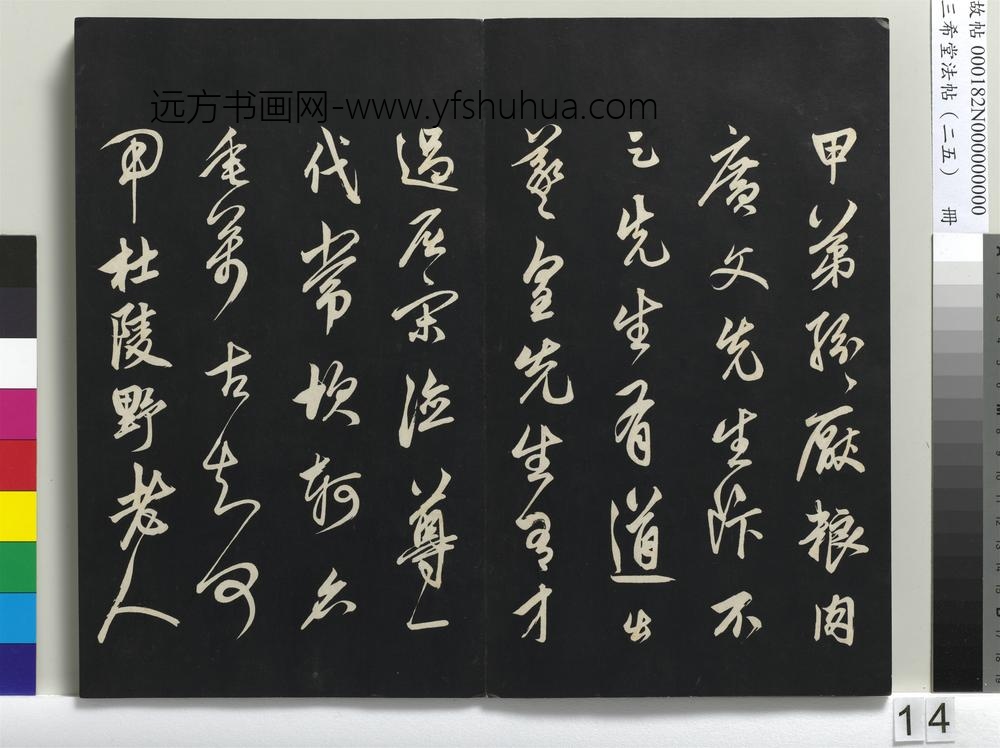 远方书画网-www.yfshuhua.com
甲第紛〻厭粮肉
廣文先生飯不
足先生有道出
羲皇先生有才
過屈宋德尊一
代常坎軻名
垂萬古知何
用杜陵野老人
故帖 000182N000000000
三希堂法帖（二五） 冊
14